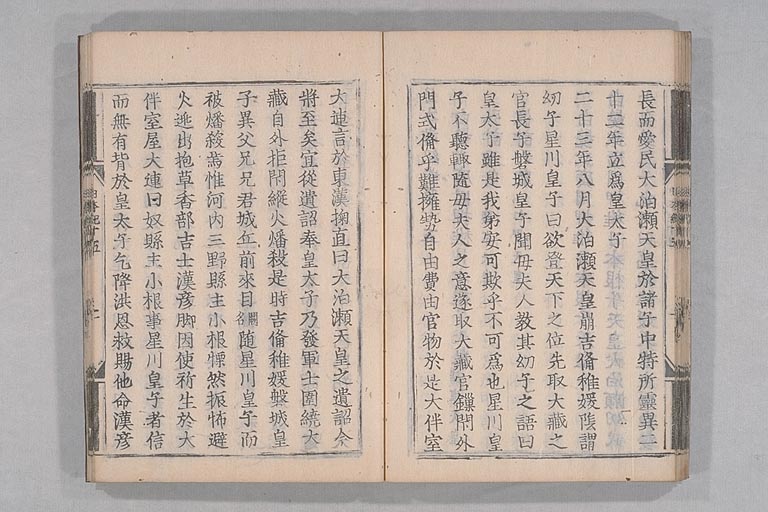 長而愛民大泊瀬天皇於諸子中特所靈異二
十二年立爲皇太子
二十三年八月大泊瀬天皇崩吉備稚媛陰謂
幼子星川皇子曰欲登天下之位先取大藏之
官長子磐城皇子聞母夫人教其幼子之語曰
皇太子雖是我弟安可欺乎不可爲也星川皇
子不聽輙隨母夫人之意遂取大藏官鏁閇外
門式備乎難擁勢自由費由官物於是大伴室
大連言於東漢掬直曰大泊瀬天皇之遺詔今
將至矣宜從遺詔奉皇太子乃發軍士圍繞大
藏自外拒閇縱火燔殺是時吉備稚媛磐城皇
子異父兄兄君城丘前來目闕名隨星川皇子而
被燔殺焉惟河内三野縣主小根慓然振怖避
火逃出抱草香部吉士漢彦脚因使祈生於大
伴室屋大連曰奴縣主小根事星川皇子者信
而無有背於皇太子乞降洪恩救賜他命漢彦